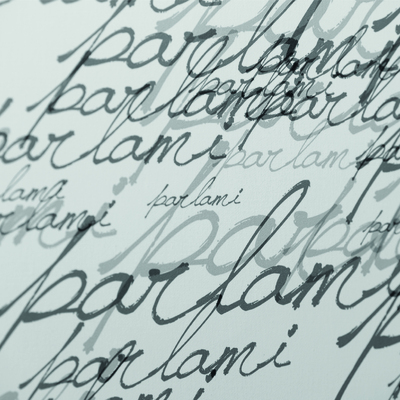 parlami
parlami
parlami
parlami
parlami
parlami
parlami
parlami
parlami
parlami
parlami